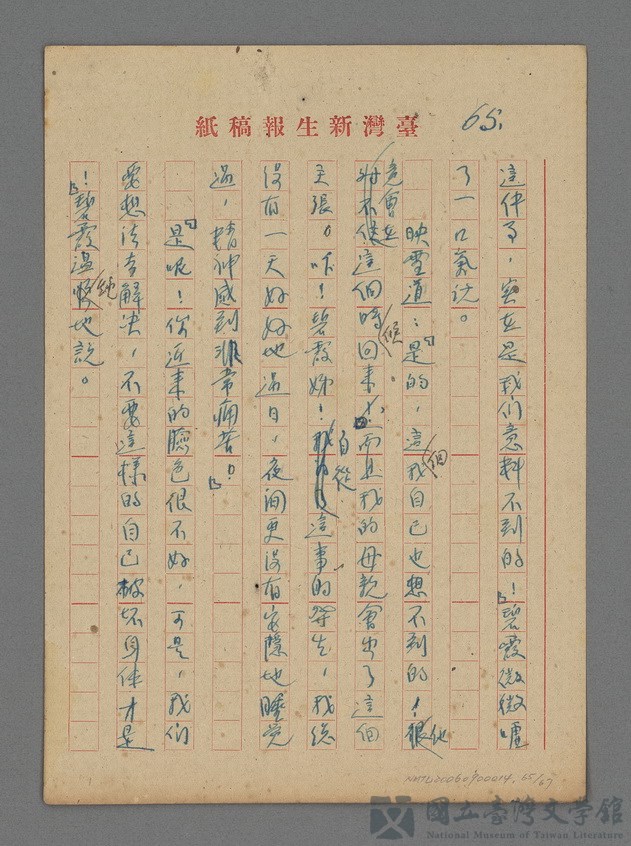 紙稿報生新灣臺
65.
這件事，實在是我們意料不到的！」碧霞微微嘆
了一口氣說。
映雪道：「是的，這個我自己也想不到的！他
竟會在這個時候回來。而且我的母親會出了這個
主張。咳！碧霞姊！自從這事的發生，我總
沒有一天好好地過日，夜間更沒有安隱地睡覺
過，精神感到非常痛苦。」
「是呢！你近來的臉色很不好，可是，我們
要想法去解決，不要這樣的自己破坏身体才是
！」碧霞溫婉地說。
NMTL20060900014, 65/67
國立臺灣文學館
National Museum of Taiwan Literature